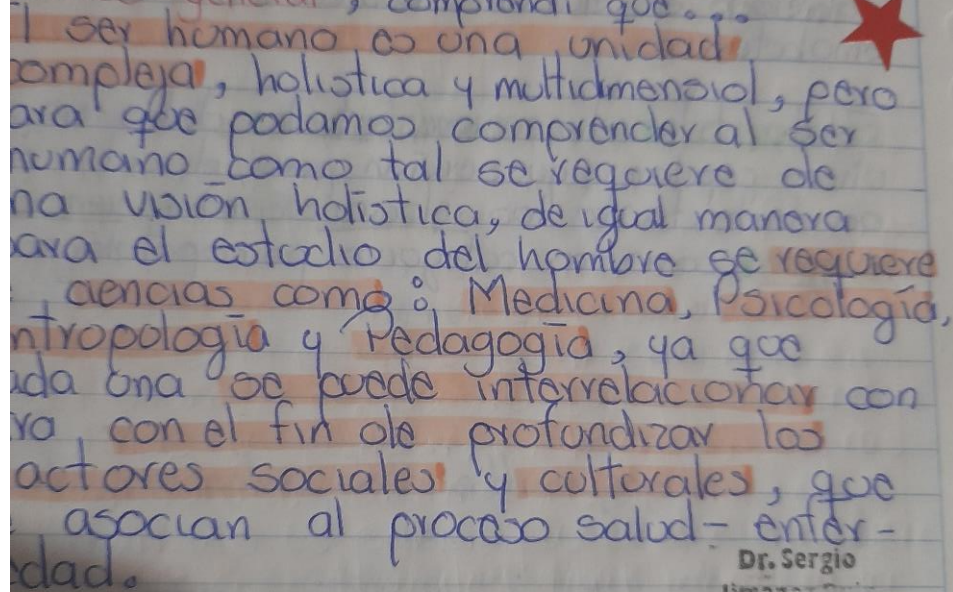 general, comprendí que...
l ser humano es una unidad
compleja, holistica y multidimensiol, pero
ara que podamos comprender al ser
humano como tal se requiere de
na visión holistica, de igual manera
para el estudio del hombre se requiere
ciencias como: Medicina, Psicología,
ntropología y Pedagogía, ya que
ada una se puede interrelacionar con
ra, con el fin de profundizar los
actores sociales y culturales, que
asocian al proceso salud-enfer-
edad.
Dr. Sergio